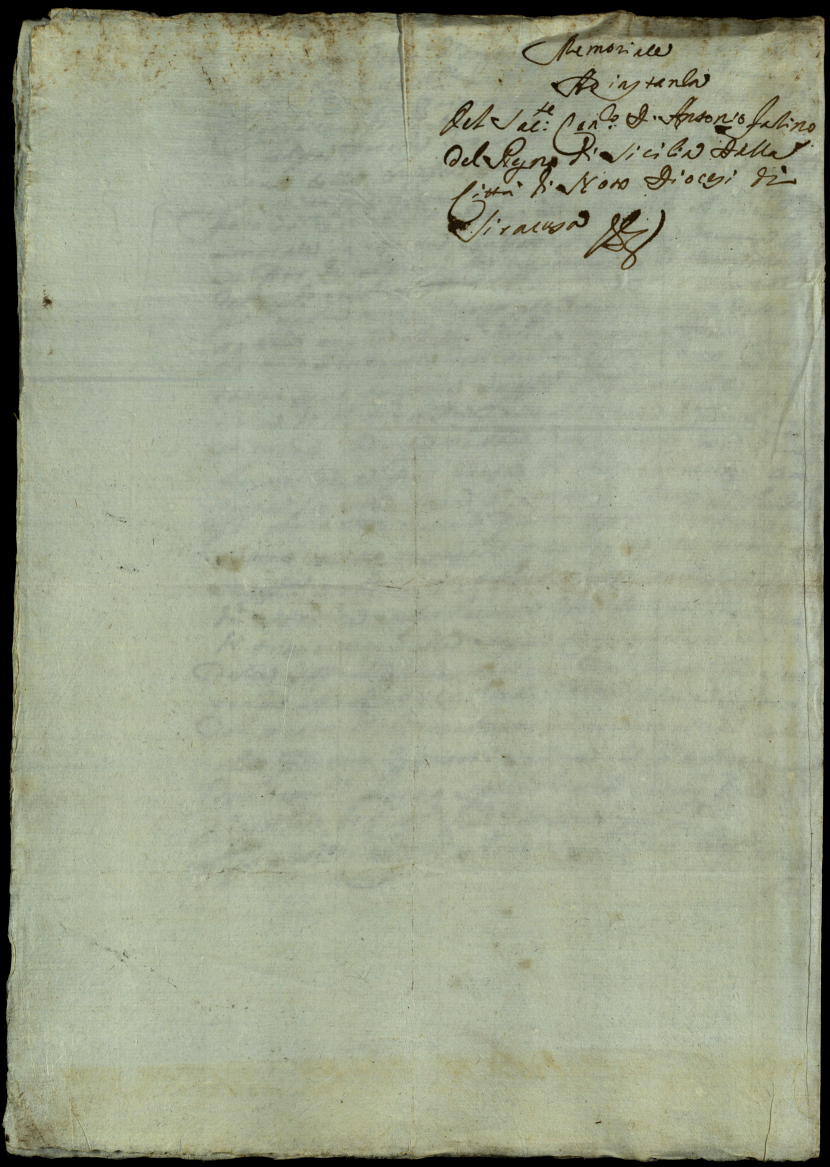 Memoriale
Ad istanza
Del Sac:te Can:co D. Antonio
del Regno di Sicilia della
Città di Noto Diocesi di
Siracusa